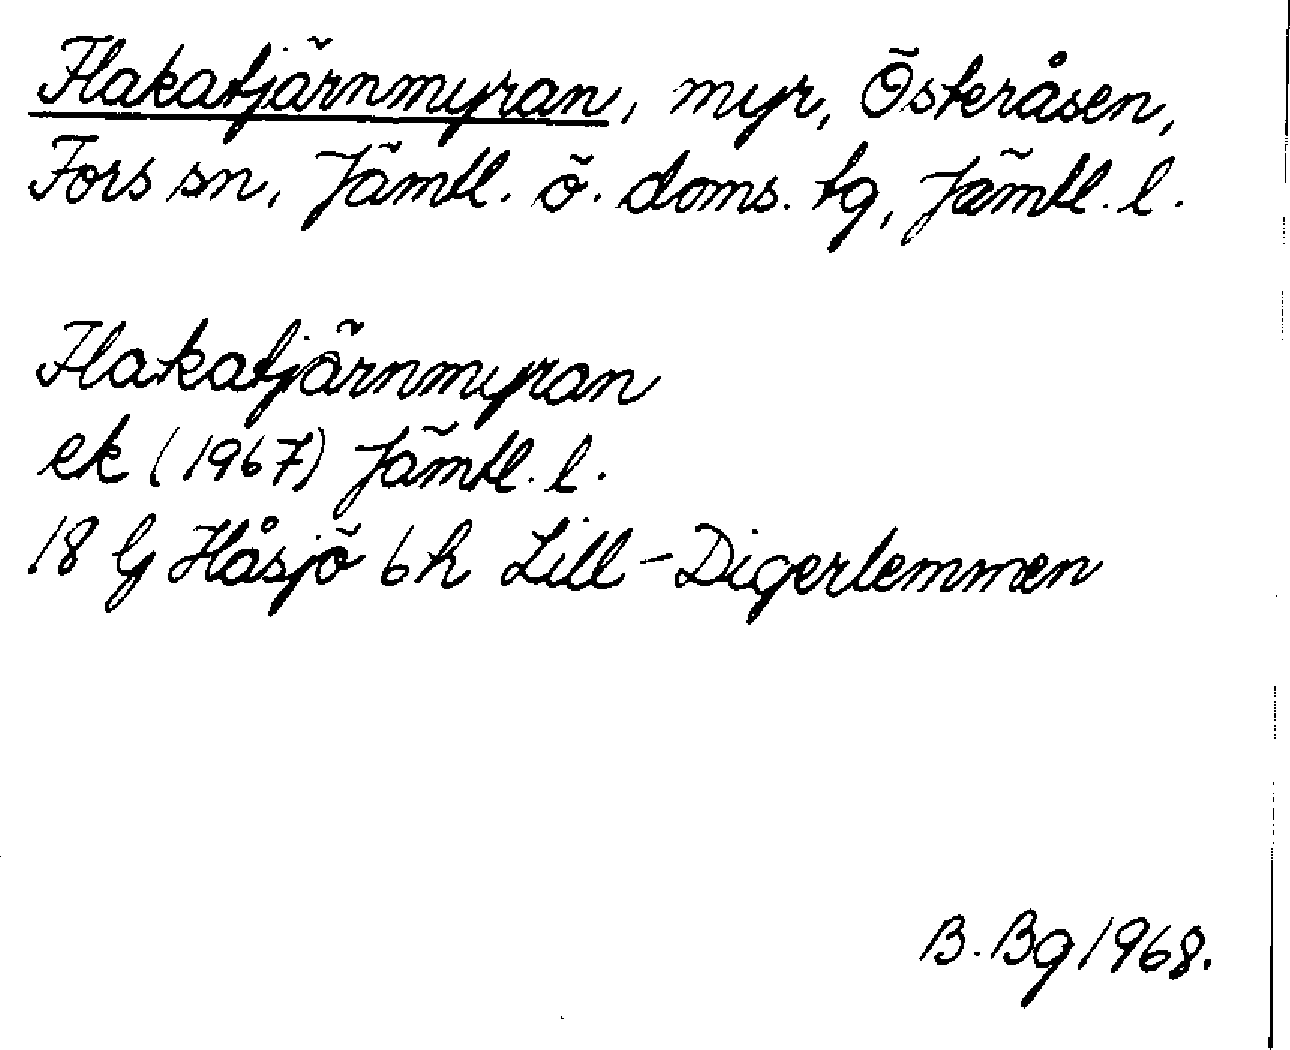 Flakatjärnmyran, myr, Österåsen,
Fors sn, Jämtl. ö. doms. tg, Jämtl. l.
Flakatjärnmyran
ek (1967) Jämtl. l.
18 G Håsjö 6h Lill-Digerlemmen
B. Bg 1968.